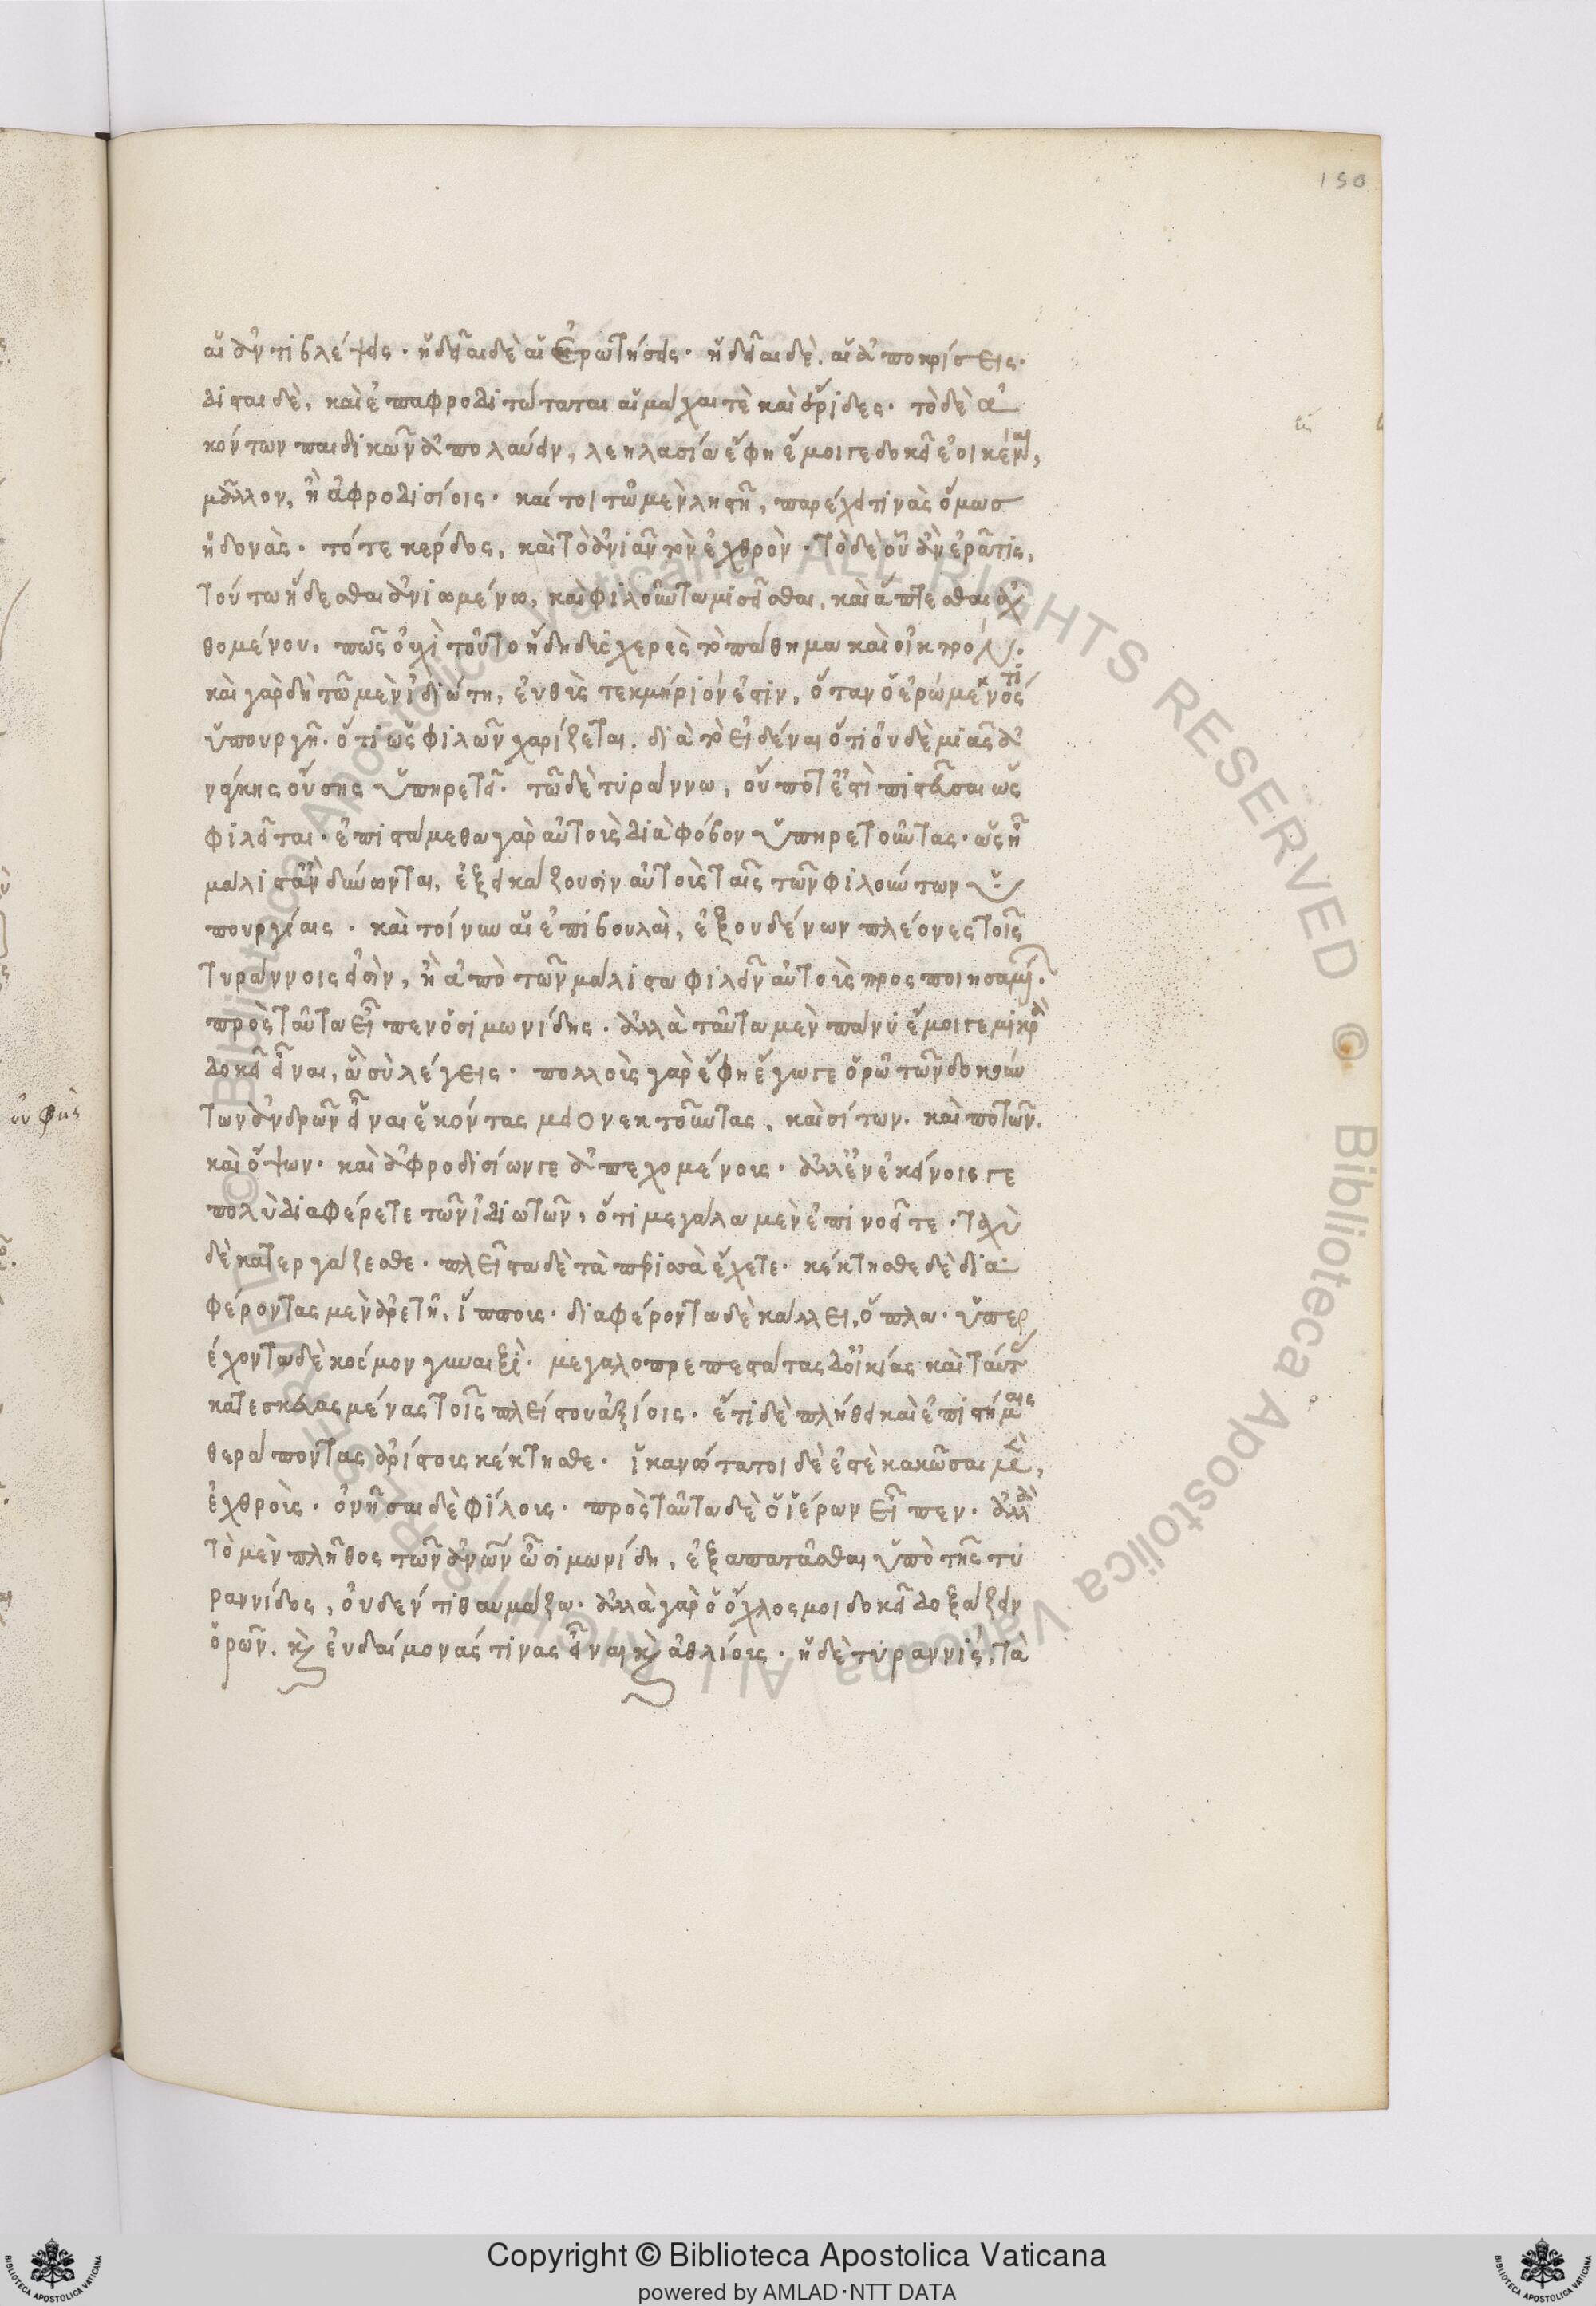 150
αἱ ἀντιβλέψεις· ἡδεῖαι δὲ αἱ ἐρωτήσεις· ἡδεῖαι δὲ, αἱ ἀποκρίσεις·
δισται δὲ, καὶ ἐπαφροδιτώταται αἱ μάχαι τὲ καὶ ἔριδες· τὸ δὲ ἀ
κόντων παιδικῶν ἀπολαύειν, λεηλασία ἔφη ἔμοιγε δοκεῖ ἐοικέναι,
μᾶλλον, ἢ ἀφροδισίοις· καί τοι τῶ μὲν ληστῆ, παρέχει τινὰς ὅμως
ἡδονὰς· τό τε κέρδος, καὶ τὸ ἀνιᾶν τὸν ἐχθρὸν· τὸ δὲ οὗ ἂν ἐρᾶ τις,
τούτω ἥδεσθαι ἀνιωμένω, καὶ φιλοῦντα μισεῖσθαι, καὶ ἅπτεσθαι ἀχ
θομένου, πῶς οὐχὶ τοῦτο ἤδη δυσχερὲς τὸ πάθημα καὶ οἰκτρόν·
καὶ γὰρ δὴ τῶ μὲν ἰδιώτη, εὐθὺς τεκμήριόν ἐστιν, ὅταν ὁ ἐρώμενός τι
ὑπουργῆ· ὅτι ὡς φιλῶν χαρίζεται, διὰ τὸ εἰδέναι ὅτι οὐδὲ μιᾶς ἀ
νάγκης οὔσης ὑπηρετεῖ· τῶ δὲ τυράννω, οὔποτ' ἔστι πιστεῦσαι ὡς
φιλεῖται· ἐπιστάμεθα γὰρ αὐτοὺς διὰ φόβον ὑπηρετοῦντας· ὡς ἧ
μάλιστ' ἂν δύνωνται, ἐξεικάζουσιν αὐτοὺς ταῖς τῶν φιλούντων ὑ
πουργίαις· καὶ τοίνυν αἱ ἐπιβουλαὶ, ἐξ οὐδένων πλέονες τοῖς
τυράννοις εἰσὶν, ἢ ἀπὸ τῶν μάλιστα φιλεῖν αὐτοὺς προσποιησαμένων·
πρὸς ταῦτα εἶπεν ὁ σιμωνίδης· ἀλλὰ ταῦτα μὲν πάνυ ἔμοιγε μικρὰ
δοκεῖ εἶναι, ἃ σὺ λέγεις· πολλοὺς γὰρ ἔφη ἔγωγε ὁρῶ τῶν δοκούν
των ἀνδρῶν εἶναι ἑκόντας μειονεκτοῦντας, καὶ σίτων· καὶ ποτῶν·
καὶ ὄψων· καὶ ἀφροδισίων γε ἀπεχομένους· ἀλλ' ἐν ἐκείνοις γε
πολὺ διαφέρετε τῶν ἰδιωτῶν, ὅτι μεγάλα μὲν ἐπινοεῖτε· ταχὺ
δὲ κατεργάζεσθε· πλεῖστα δὲ τὰ περισσὰ ἔχετε· κέκτησθε δὲ δια
φέροντας μὲν ἀρετῆ, ἵππους· διαφέροντα δὲ κάλλει, ὅπλα· ὑπερ
έχοντα δὲ κόσμον γυναιξὶ· μεγαλοπρεπεστάτας δ' οἰκίας καὶ ταύτας
κατεσκευασμένας τοῖς πλείστου ἀξίοις· ἔτι δὲ πλήθει καὶ ἐπιστήμαις
θεράποντας ἀρίστους κέκτησθε· ἱκανώτατοι δὲ ἐστὲ κακῶσαι μὲν,
ἐχθροὺς· ὀνῆσαι δὲ φίλους· πρὸς ταῦτα δὲ ὁ ἱέρων εἶπεν· ἀλλὰ
τὸ μὲν πλῆθος τῶν ἀνῶν ὦ σιμωνίδη, ἐξαπατᾶσθαι ὑπὸ τῆς τυ
ραννίδος, οὐδέν τι θαυμάζω· ἀλλὰ γὰρ ὁ ὄχλος μοι δοκεῖ δοξάζειν
ὁρῶν· καὶ εὐδαίμονάς τινας εἶναι καὶ ἀθλίους· ἡ δὲ τυραννὶς, τὰ
Copyright © Biblioteca Apostolica Vaticana
powered by AMLAD·NTT DATA